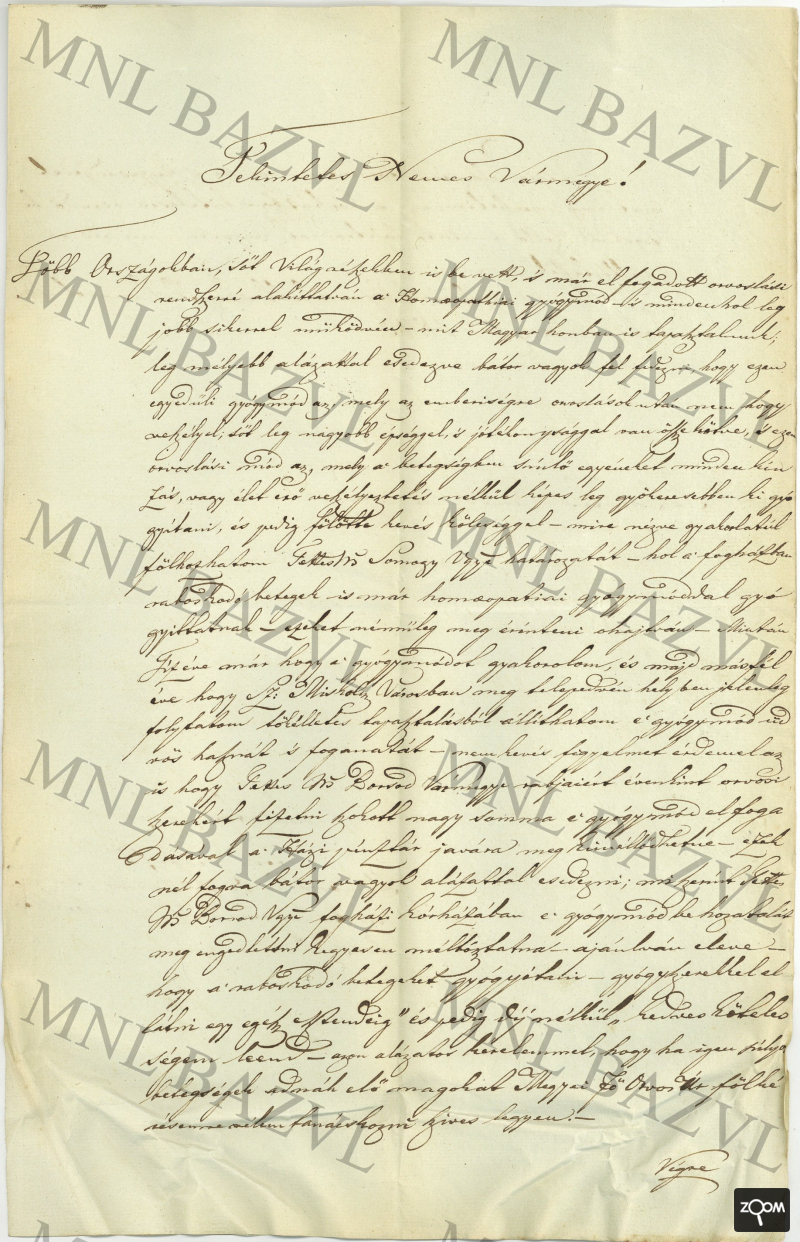 Tekintetes Nemes Vármegye!
Több Országokban, sőt Világrészekben is be vett, s már el fogadott orvoslási
rendszerré alakíttatván a' Homœopathiai gyógymód – és mindenhol leg
jobb sikerrel működvén – mit Magyar honban is tapasztalunk;
leg mélyebb alázattal esedezve bátor vagyok fel hogy ezen
egyedüli gyógymód az, mely az emberiségre orvoslások után nem hogy
veszélyel, sőt leg nagyobb épséggel, s jótékonysággal van össze kötve, s ezen
orvoslási mód az, mely a' betegségben sínlő egyéneket minden kín
zás, vagy élet erő veszélyeztetés nélkül képes leg gyökeresebben ki gyó
gyítani, és pedig fölötte kevés költséggel – mire nézve gyakorlatul
fölhozhatom Tettes Ns Somogy Vgye határozatát – hol a' fogházban
raboskodó betegek is már homœopathiai gyógymóddal gyó
gyíttatnak – ezeket némileg meg érinteni ohajtván – Miután
Tíz éve már hogy e' gyógymódot gyakorolom, és majd másfél
éve hogy Sz: Miskolcz Városban meg telepedvén helyben jelenleg
folytatom tökélletes tapasztalásból állíthatom e' gyógymód üd
vös hasznát s foganatát – nem kevés figyelmet érdemel az
is hogy Tettes Ns Borsod Vármegye rabjaiért évenkint orvosi
szerekért fizetni szokott nagy somma e' gyógymód el foga
dásával a' Házi pénztár javára meg – ezek
nél fogva bátor vagyok alázattal esedezni; miszerint Tettes
Ns Borsod Vgye fogházi kórházában e' gyógymód be hozatalát
meg engedtetni kegyesen méltóztatna – ajánlván eleve –
hogy a' raboskodó betegeket gyógyítani – gyógyszerekkel el
látni egy egész Esztendeig" és pedig díj nélkül" kedves köteles
ségem leend – azon alázatos kérelemmel, hogy ha igen súlyos
betegségek adnák elő magokat Megyei Fő Orvos Úr
vélem tanácskozni szives legyen. –
Végre
MNL BAZVL
ZOOM